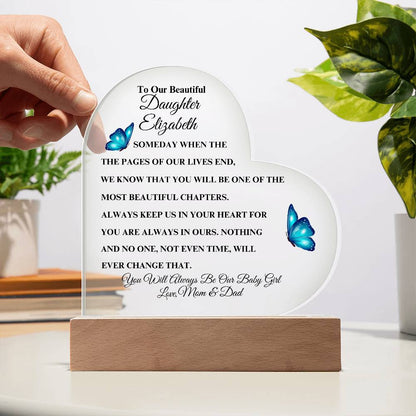 To Our Beautiful
Daughter
Elizabeth
SOMEDAY WHEN THE
THE PAGES OF OUR LIVES END,
WE KNOW THAT YOU WILL BE ONE OF THE
MOST BEAUTIFUL CHAPTERS.
ALWAYS KEEP US IN YOUR HEART FOR
YOU ARE ALWAYS IN OURS. NOTHING
AND NO ONE, NOT EVEN TIME, WILL
EVER CHANGE THAT.
You Will Always Be Our Baby Girl
Love, Mom & Dad